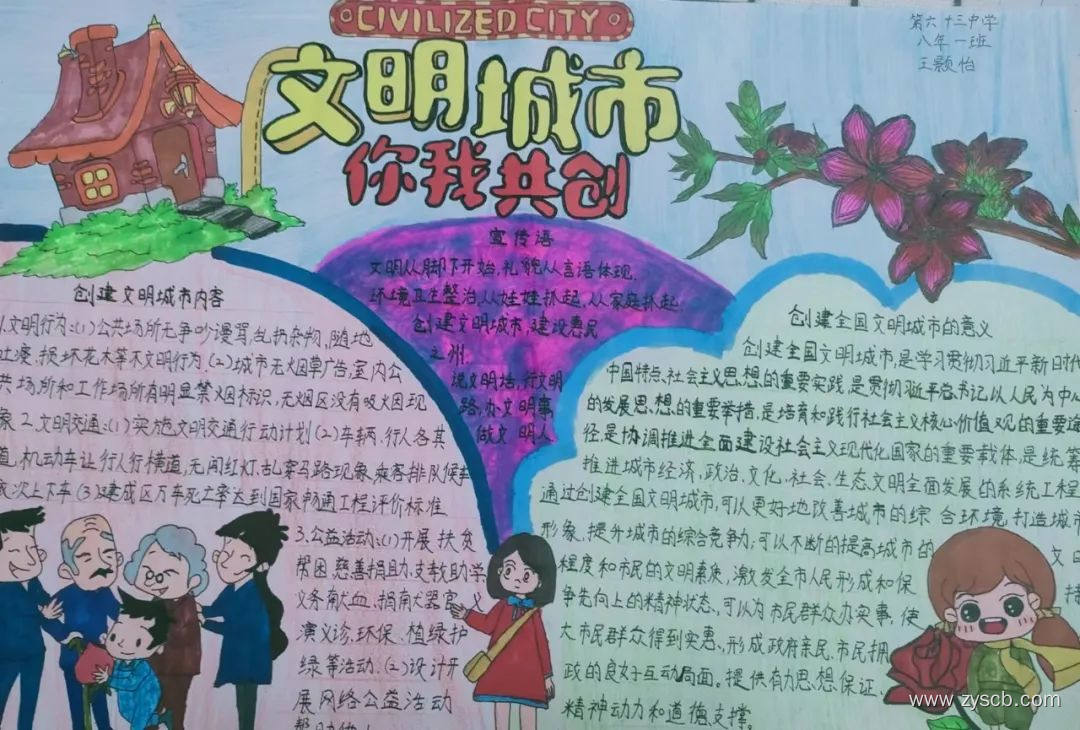 CIVILIZED CITY
文明城市
你我共创
第六十三中学
八年一班
王颢怡
宣传语
文明从脚下开始,礼貌从言语体现,
环境卫生整治,从娃娃抓起,从家庭抓起.
创建文明城市,建设惠民
之州.
说文明话,行文明
路,办文明事,
做文明人
创建文明城市内容
1.文明行为:(1)公共场所无争吵谩骂,乱扔杂物,随地
吐痰,损坏花木等不文明行为.(2)城市无烟草广告,室内公
共场所和工作场所有明显禁烟标识,无烟区没有吸烟现
象2.文明交通:(1)实施文明交通行动计划(2)车辆,行人各其
道,机动车让行人行横道,无闯红灯,乱穿马路现象,乘客排队候车
依次上下车(3)建成区万车死亡率达到国家畅通工程评价标准
3.公益活动:(1)开展扶贫
帮困,慈善捐助,支教助学
义务献血,捐献器官,义
演义诊,环保、植绿护
绿等活动.(2)设计开
展网络公益活动
创建全国文明城市的意义
创建全国文明城市,是学习贯彻习近平新时代
中国特点社会主义思想的重要实践,是贯彻习近平总书记以人民为中心
的发展思想的重要举措,是培育和践行社会主义核心价值观的重要途
径,是协调推进全面建设社会主义现代化国家的重要载体,是统筹
推进城市经济,政治,文化,社会,生态文明全面发展的系统工程
通过创建全国文明城市,可以更好地改善城市的综合环境,打造城市
形象,提升城市的综合竞争力;可以不断的提高城市的文明
程度和市民的文明素质,激发全市人民形成和保持
争先向上的精神状态,可以为市民群众办实事,使
大市民群众得到实惠,形成政府亲民,市民拥
政的良好互动局面。提供有力思想保证、
精神动力和道德支撑.
www.zyscb.com